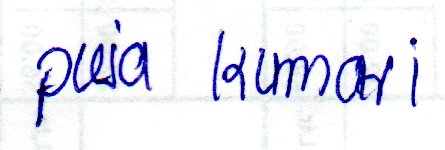 puja kumari